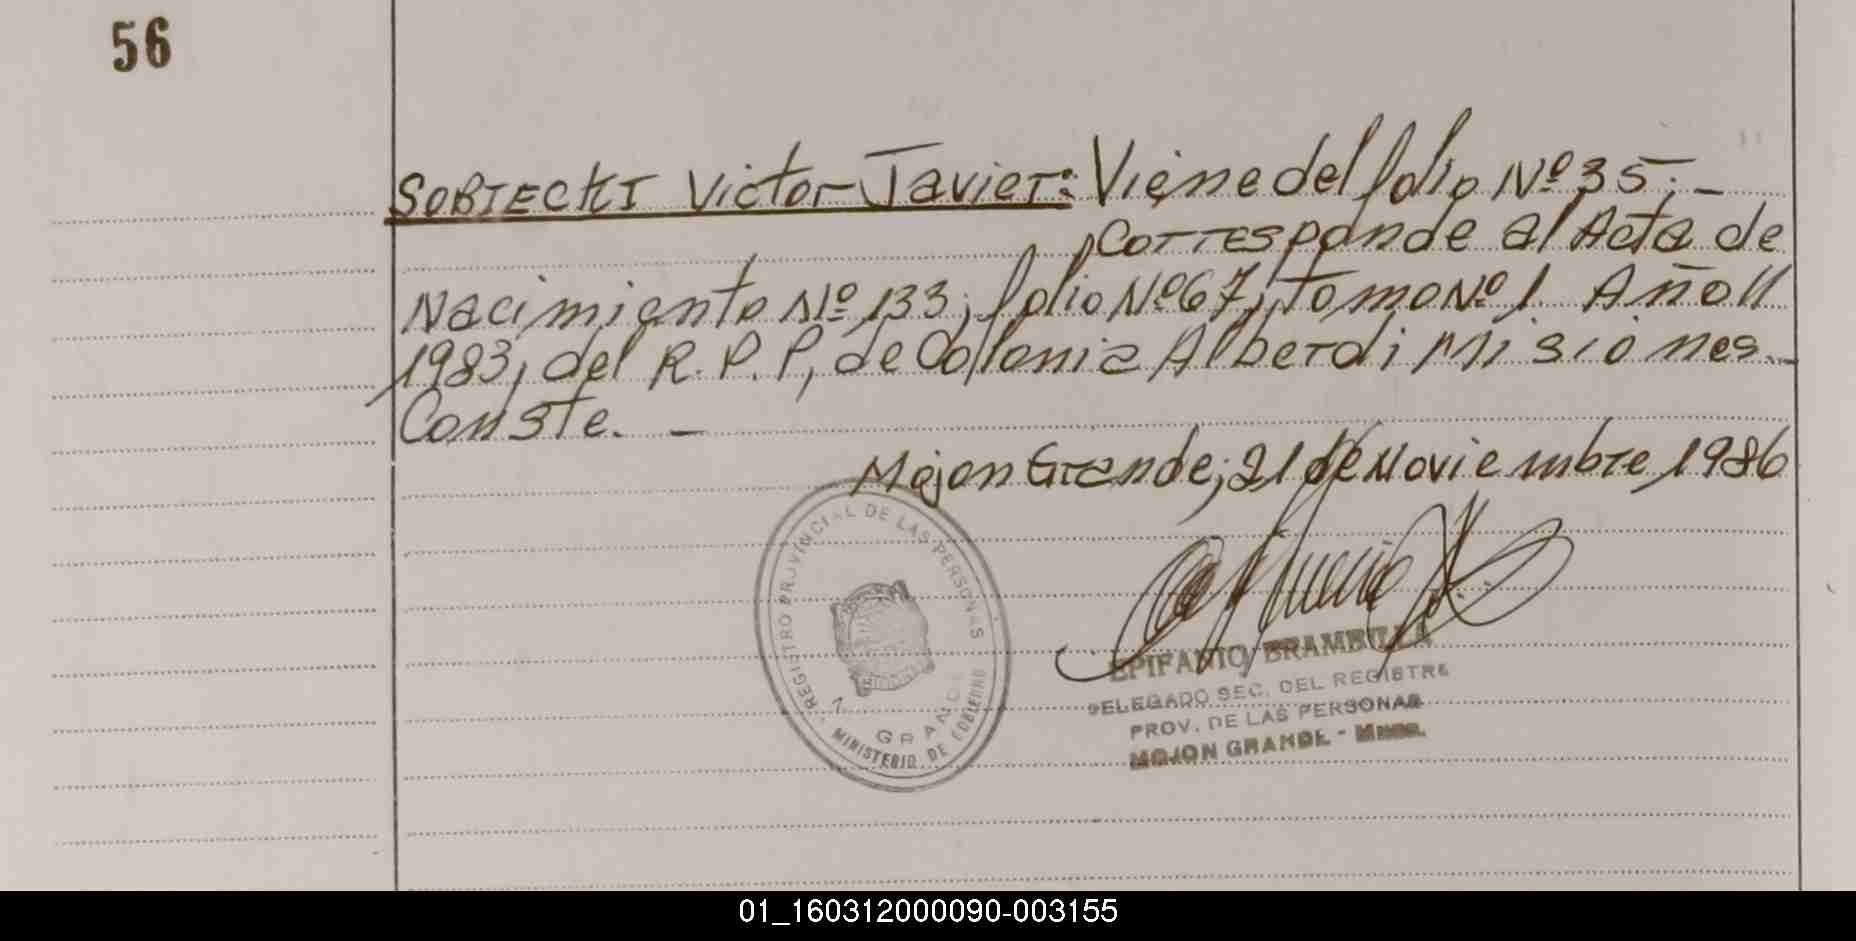 56
SOBIECKI Victor Javier: Viene del folio Nº 35.-
Corresponde al Acta de
Nacimiento Nº 133, folio Nº 67, tomo Nº 1 Año
1983, del R.P.P, de Collonia Alberdi Misiones.-
Conste. -
Mojon Grande, 21 de Noviembre, 1986
REGISTRO PROVINCIAL DE LAS PERSONAS
GRANDE
MINISTERIO DE GOBIERNO
EPIFANIO BRAMBILLA
DELEGADO SEC. DEL REGISTRO
PROV. DE LAS PERSONAS
MOJON GRANDE - Mnes.
01_160312000090-003155